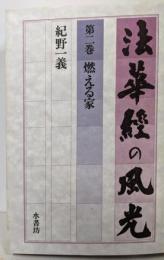 法華經の風光
第二巻 燃える家
紀野一義
水書坊